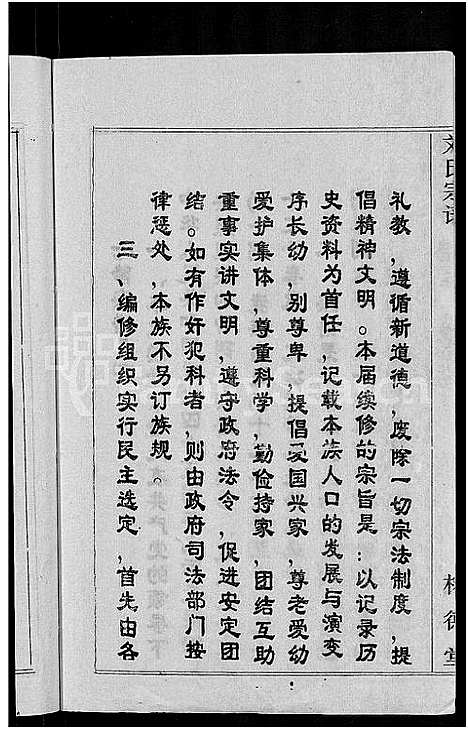 礼教，遵循新道德，废除一切宗法制度，提
倡精神文明。本届续修的宗旨是：以记录历
史资料为首任，记载本族人口的发展与演变
序长幼，别尊卑，提倡爱国兴家，尊老爱幼
爱护集体，尊重科学，勤俭持家，团结互助
重事实讲文明，遵守政府法令，促进安定团
结。如有作奸犯科者，则由政府司法部门按
律惩处，本族不另订族规。
三、编修组织实行民主选定，首先由各